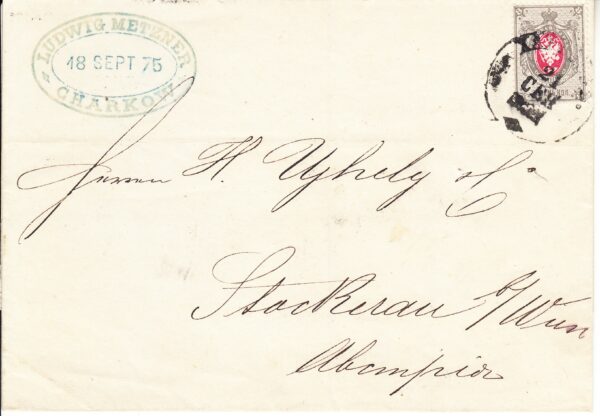 LUDWIG METZNER
18 SEPT 75
CHARKOW
СЕН
Herren H. Ujhely & Cie
Stockerau b/Wien